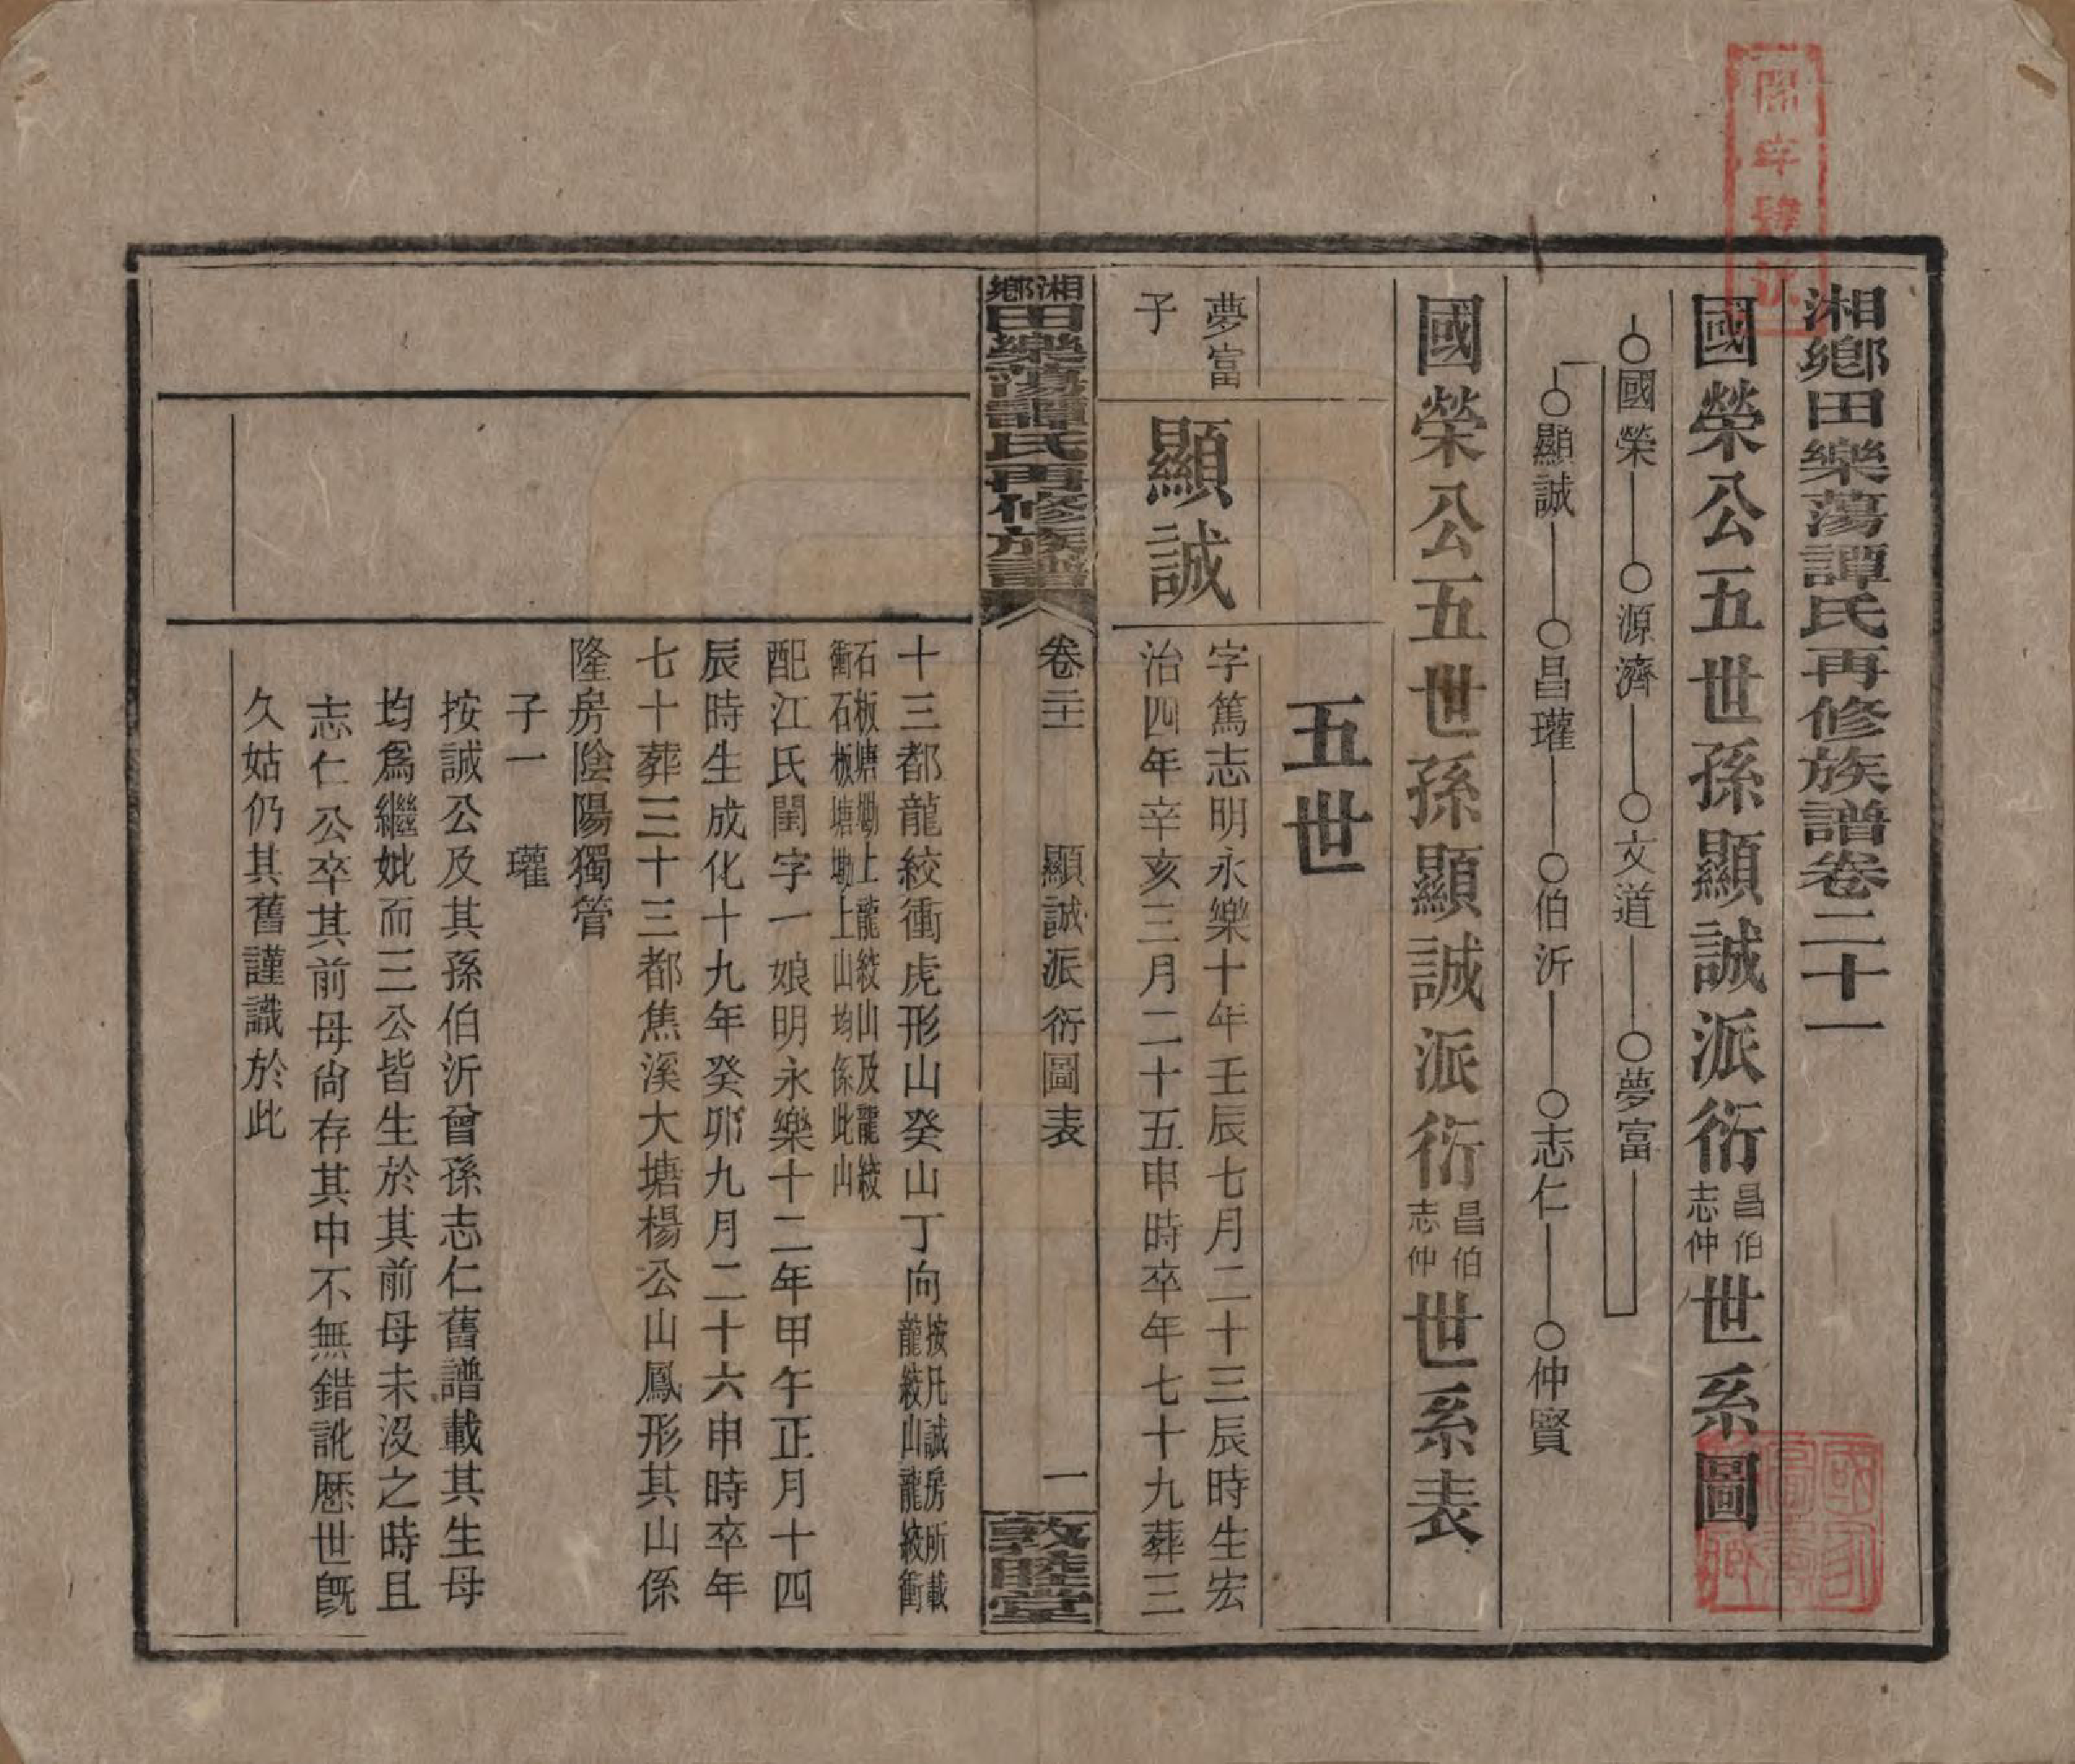 湘鄉田樂蕩譚氏再修族譜卷二十一
國榮公五世孫顯誠派衍昌伯志仲世系圖
○國榮——○源濟——○文道——○夢富
○顯誠——○昌瓘——○伯沂——○志仁——○仲賢
國榮公五世孫顯誠派衍昌伯志仲世系表
五世
夢富
子
顯誠
字篤志明永樂十年壬辰七月二十三辰時生宏
治四年辛亥三月二十五申時卒年七十九葬三
湘鄉田樂蕩譚氏再修族譜
卷二十一
顯誠派衍圖表
一
敦睦堂
十三都龍絞衝虎形山癸山丁向按凡誠房所載龍絞山龍絞衝
石板塘坳上龍絞山及龍絞衝石板塘坳上山均係此山
配江氏閨字一娘明永樂十二年甲午正月十四
辰時生成化十九年癸卯九月二十六申時卒年
七十葬三十三都焦溪大塘楊公山鳳形其山係
隆房陰陽獨管
子一 瓘
按誠公及其孫伯沂曾孫志仁舊譜載其生母
均為繼妣而三公皆生於其前母未沒之時且
志仁公卒其前母尚存其中不無錯訛歷世既
久姑仍其舊謹識於此